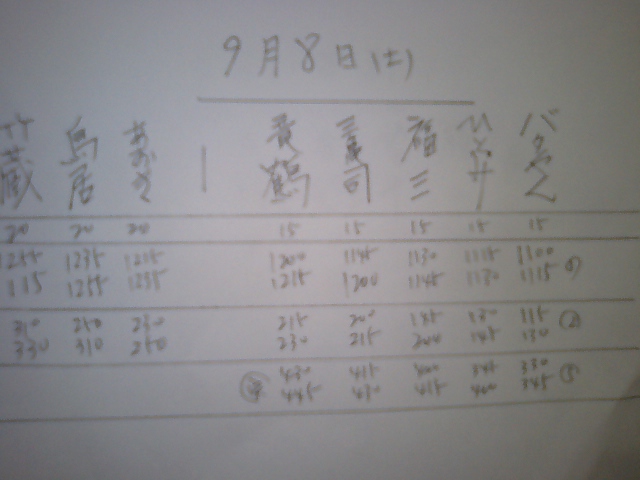 9月8日(土)
蔵 鳥居 貴鶴 司 福三
20 20 20 15 15 15 15 15
1255 1235 1215 1200 1145 1130 1115 1100 ①
115 1255 1235 1215 1200 1145 1130 1115
310 250 230 215 200 145 130 115 ②
330 310 250 230 215 200 145 130
430 415 400 345 330 ③
445 430 415 400 345